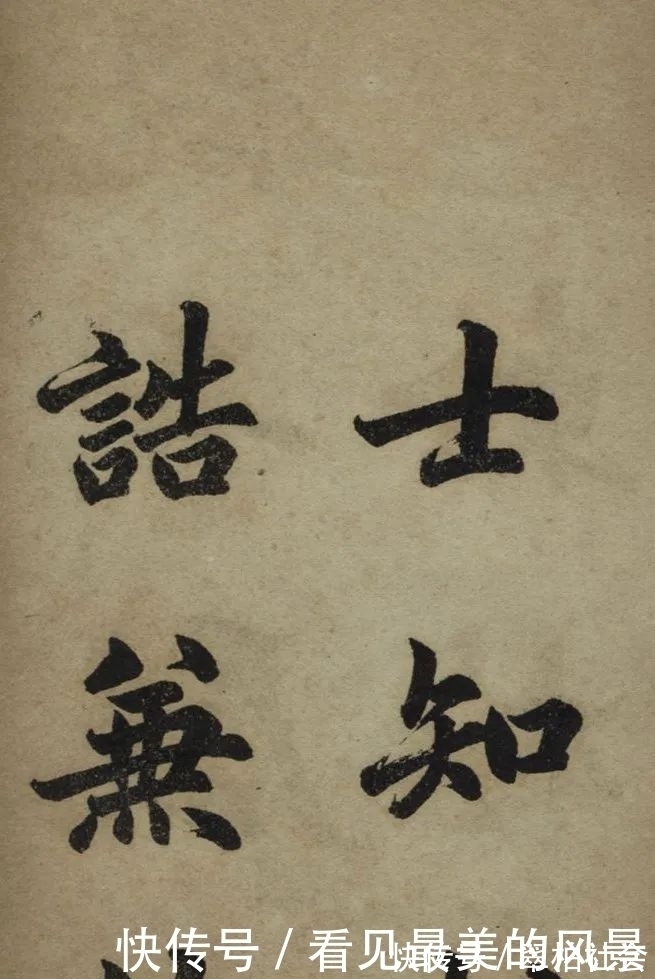 士知
誥兼
快传号 / 看见最美的风景
快传号 /